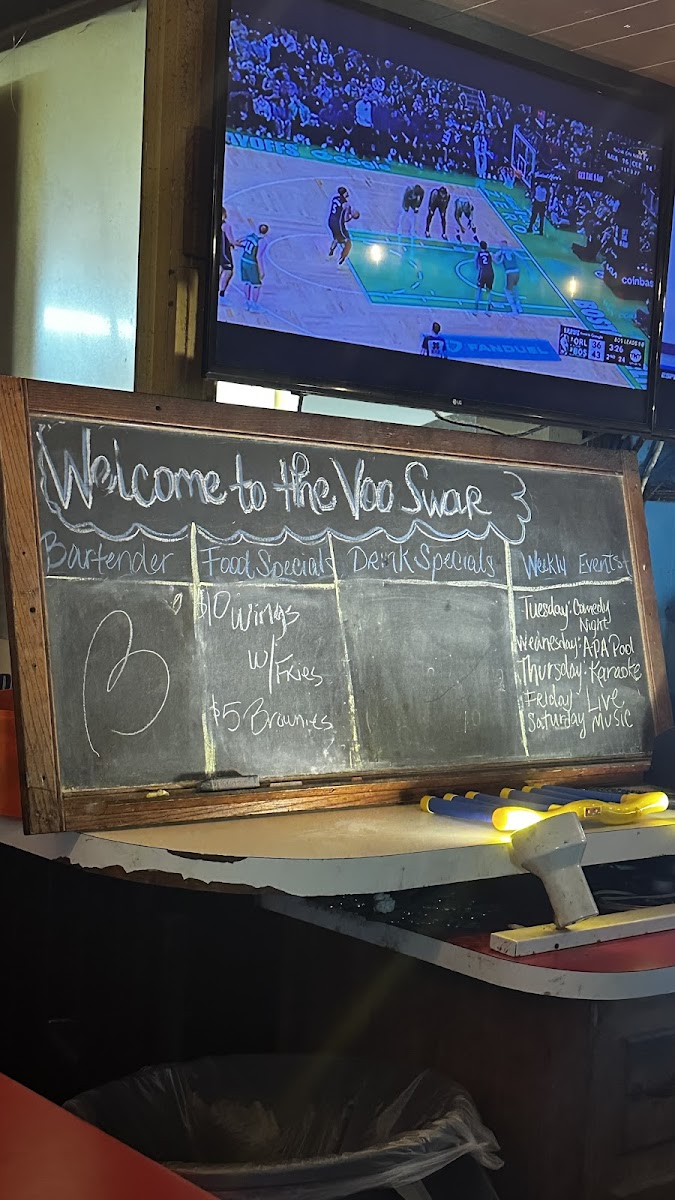 PLAYOFFS
MIA 16 CLE 14
coinbase
FANDUEL
BOS LEADS 1-0
ORL 36 3:26
BOS 43 2ND 24
TNT
LG
Welcome to the Voo Swar
Bartender
Food Specials
Drink Specials
Weekly Events
B
$10 Wings
w/ Fries
$5 Brownies
Tuesday: Comedy
Night
Wednesday: APA Pool
Thursday: Karaoke
Friday Live
Saturday Music